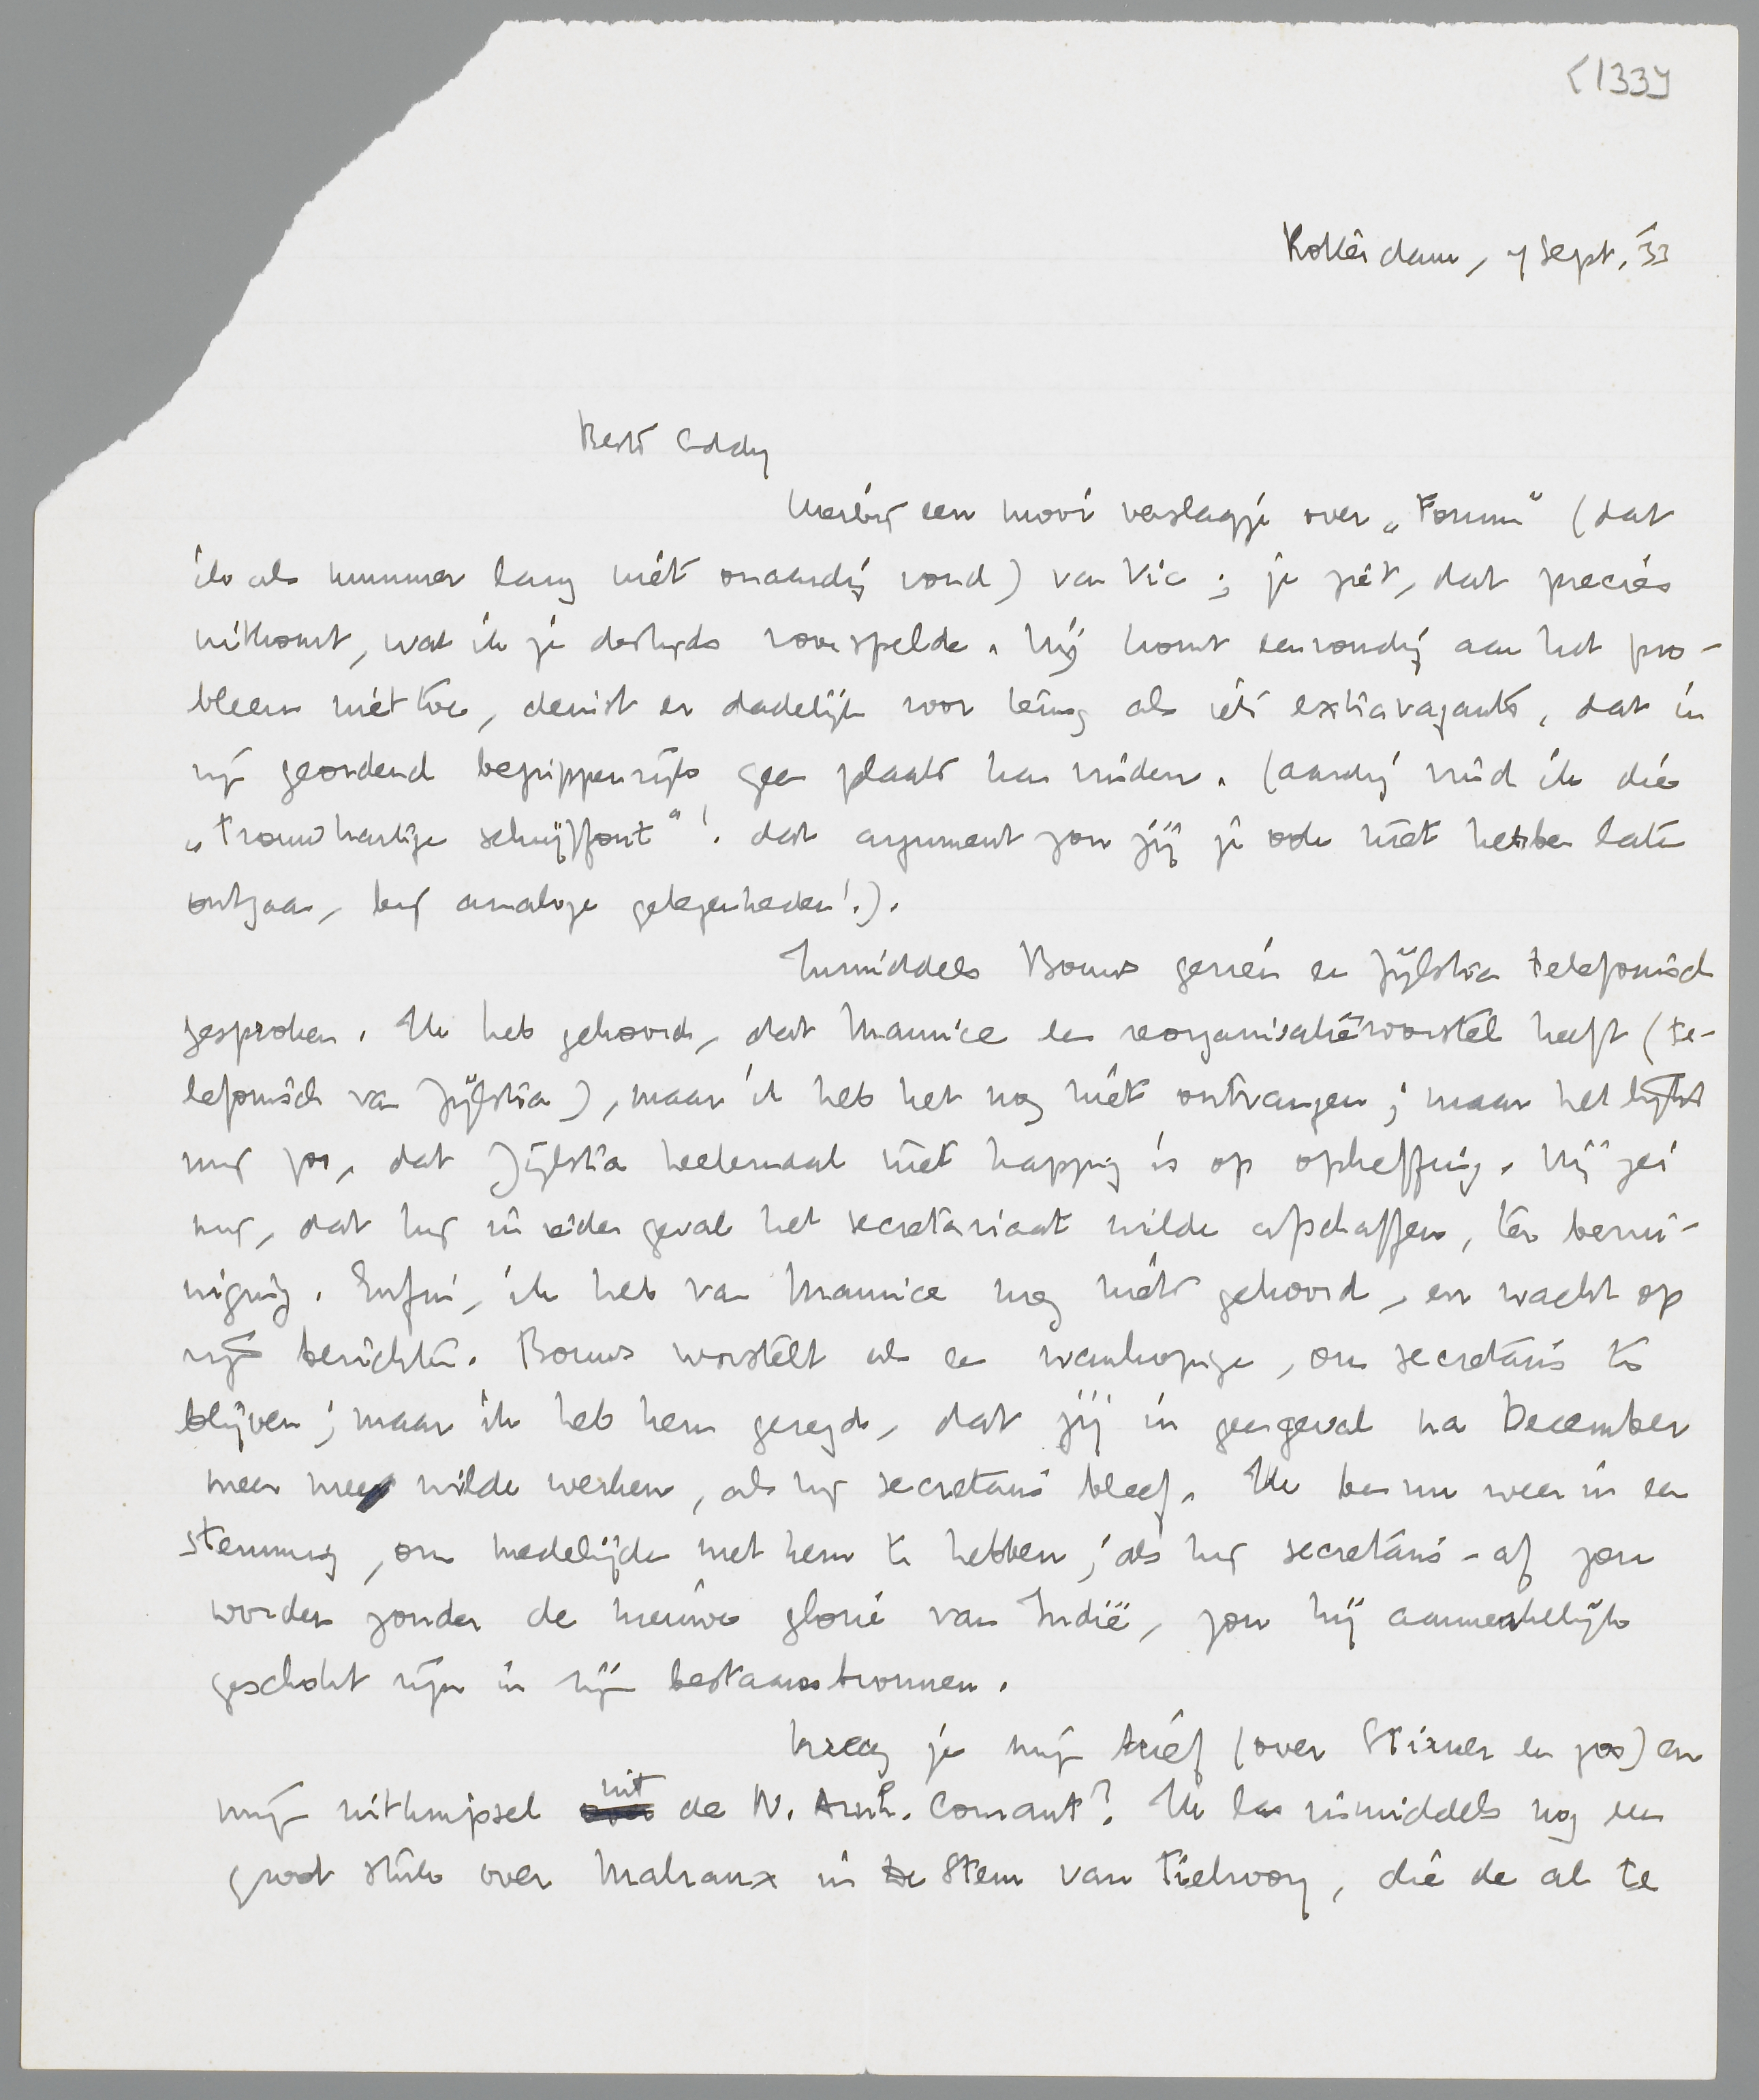 <133>
Rotterdam, 7 Sept. '33
Beste Eddy
Hierbij een mooi verslagje over „Forum” (dat
ik als nummer lang niet onaardig vond) van Vic; je ziet, dat precies
uitkomt, wat ik je destijds voorspelde. Hij komt eenvoudig aan het pro-
bleem niet toe, deinst er dadelijk voor terug als iets extravagants, dat in
zijn geordend begrippenrijk geen plaats kan vinden. (Aardig vind ik die
„trouwhartige schrijffout”! dat argument zou jij je ook niet hebben laten
ontgaan, bij analoge gelegenheden!).
Inmiddels Bouws gezien en Zijlstra telefonisch
gesproken. Ik heb gehoord, dat Maurice een reorganisatievoorstel heeft (te-
lefonisch van Zijlstra), maar ik heb het nog niet ontvangen; maar het lijkt
mij zoo, dat Zijlstra heelemaal niet happig is op opheffing. Hij zei
mij, dat hij in ieder geval het secretariaat wilde afschaffen, ter bezui-
niging. Enfin, ik heb van Maurice nog niets gehoord, en wacht op
zijn berichten. Bouws worstelt als een wanhopige, om secretaris te
blijven; maar ik heb hem gezegd, dat jij in geen geval na December
meer mee wilde werken, als hij secretaris bleef. Ik ben nu weer in een
stemming, om medelijden met hem te hebben; als hij secretaris-af zou
worden zonder de nieuwe glorie van Indië, zou hij aanmerkelijk
geschokt zijn in zijn bestaansbronnen.
Kreeg je mijn brief (over Stirner en zoo) en
mijn uitknipsel over uit de N. Arnh. Courant? Ik las inmiddels nog een
groot stuk over Malraux in De Stem van Tielrooy, die de al te